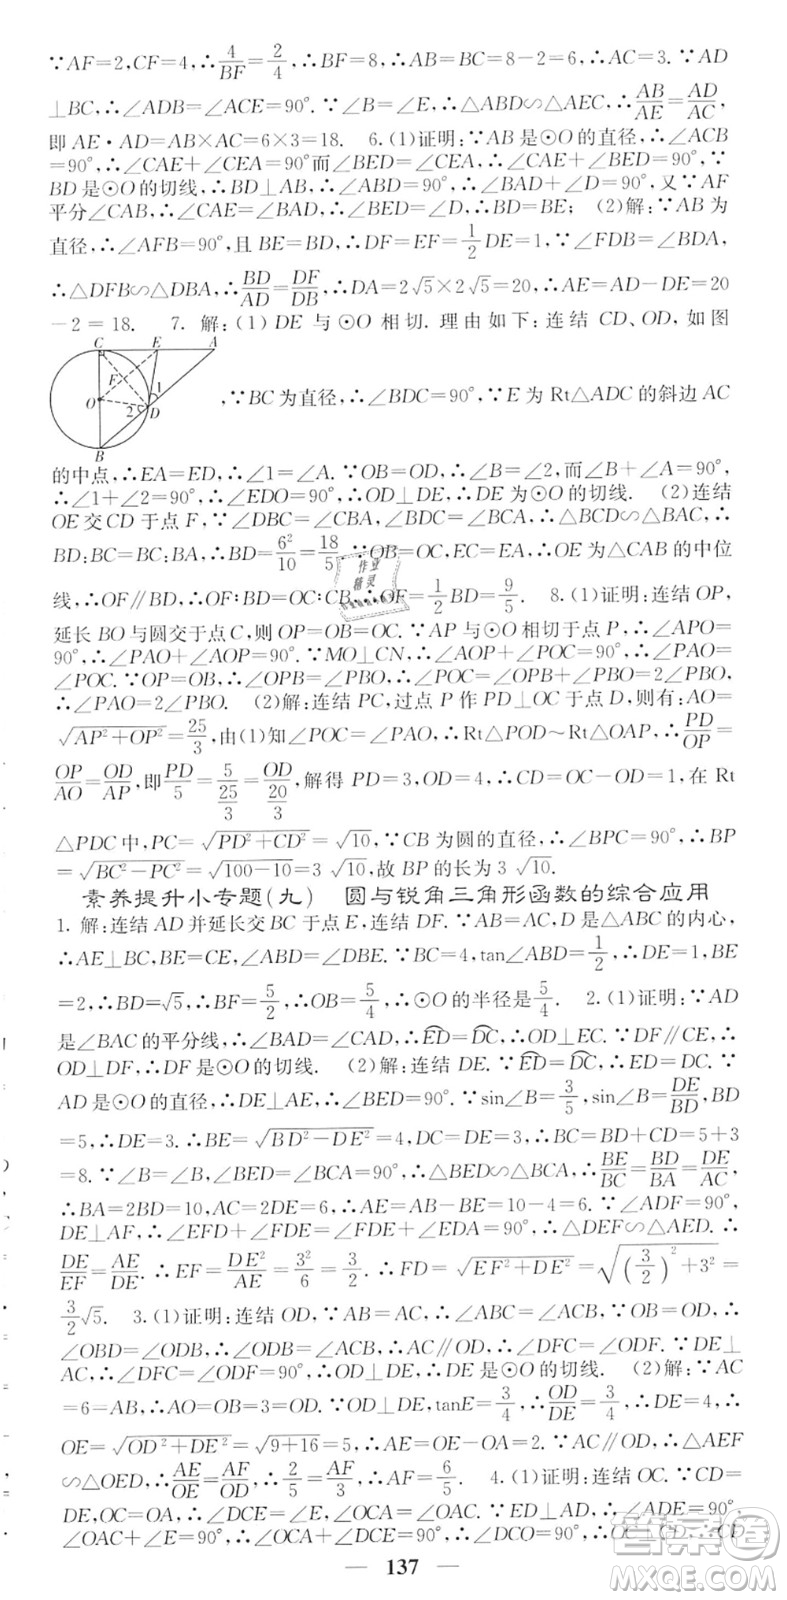 ∵AF=2,CF=4,∴4/BF=2/4,∴BF=8,∴AB=BC=8-2=6,∴AC=3.∵AD
⊥BC,∴∠ADB=∠ACE=90°.∵∠B=∠E,∴△ABD∽△AEC,∴AB/AE=AD/AC,
即AE·AD=AB×AC=6×3=18. 6.(1)证明:∵AB是⊙O的直径,∴∠ACB
=90°,∴∠CAE+∠CEA=90°而∠BED=∠CEA,∴∠CAE+∠BED=90°,∵
BD是⊙O的切线,∴BD⊥AB,∴∠ABD=90°,∴∠BAD+∠D=90°,又∵AF
平分∠CAB,∴∠CAE=∠BAD,∴∠BED=∠D,∴BD=BE; (2)解:∵AB为
直径,∴∠AFB=90°,且BE=BD=2√5,∴DF=EF=1/2DE=1,∵∠FDB=∠BDA,
∴△DFB∽△DBA,∴BD/AD=DF/DB,∴DA=2√5×2√5=20,∴AE=AD-DE=20
-2=18. 7. 解:(1) DE 与⊙O 相切. 理由如下:连结 CD、OD,如图
C E A
F 1
O 2 D
B
,∵BC为直径,∴∠BDC=90°,∵E为Rt△ADC的斜边AC
的中点,∴EA=ED,∴∠1=∠A.∵OB=OD,∴∠B=∠2,而∠B+∠A=90°,
∴∠1+∠2=90°,∴∠EDO=90°,∴OD⊥DE,∴DE为⊙O的切线. (2)连结
OE交CD于点F,∵∠DBC=∠CBA,∠BDC=∠BCA,∴△BCD∽△BAC,∴
BD:BC=BC:BA,∴BD=6²/10=18/5.∵OB=OC,EA=EC,∴OE为△CAB的中位
线,∴OF∥BD,∴OF:BD=OC:CB,∴OF=1/2BD=9/5. 8.(1)证明:连结OP,
延长BO与圆交于点C,则OP=OB=OC.∵AP与⊙O相切于点P,∴∠APO=
90°,∴∠PAO+∠AOP=90°.∵MO⊥CN,∴∠AOP+∠POC=90°,∴∠PAO=
∠POC.∵OP=OB,∴∠OPB=∠PBO,∴∠POC=∠OPB+∠PBO=2∠PBO,
∴∠PAO=2∠PBO. (2)解:连结PC,过点P作PD⊥OC于点D,则有:AO=
√AP²+OP²=25/3,由(1)知∠POC=∠PAO,∴Rt△POD~Rt△OAP,∴PD/OP=
OP/AO=OD/AP,即PD/5=5/(25/3)=OD/(20/3),解得PD=3,OD=4,∴CD=OC-OD=1,在Rt
△PDC中,PC=√PD²+CD²=√10,∵CB为圆的直径,∴∠BPC=90°,∴BP
=√BC²-PC²=√100-10=3√10,故BP的长为3√10.
素养提升小专题(九) 圆与锐角三角形函数的综合应用
1. 解:连结AD并延长交BC于点E,连结DF.∵AB=AC,D是△ABC的内心,
∴AE⊥BC,BE=CE,∠ABD=∠DBE.∵BC=4,tan∠ABD=1/2,∴DE=1,BE
=2,∴BD=√5,∴BF=5/2,∴OB=5/4,∴⊙O的半径是5/4. 2.(1)证明:∵AD
是∠BAC的平分线,∴∠BAD=∠CAD,∴ED=DC,∴OD⊥EC.∵DF∥CE,∴
OD⊥DF,∴DF是⊙O的切线. (2)解:连结DE.∵ED=DC,∴ED=DC=3.∵
AD是⊙O的直径,∴DE⊥AE,∴∠BED=90°.∵sin∠B=3/5,sin∠B=DE/BD,BD
=5,∴DE=3.∴BE=√BD²-DE²=4,DC=DE=3,∴BC=BD+CD=5+3
=8.∵∠B=∠B,∠BED=∠BCA=90°,∴△BED∽△BCA,∴BE/BC=BD/BA=DE/AC,
∴BA=2BD=10,AC=2DE=6,∴AE=AB-BE=10-4=6.∵DF⊥AD,
DE⊥AF,∴∠EFD+∠FDE=∠FDE+∠EDA=90°,∴△DEF∽△AED.∴
DE/EF=AE/DE.∴EF=DE²/AE=3²/6=3/2.∴FD=√EF²+DE²=√(3/2)²+3²=
3/2√5. 3.(1)证明:连结OD,∵AB=AC,∴∠B=∠C.∵OB=OD,∴
∠OBD=∠ODB,∴∠ODB=∠C,∴AC∥OD,∴∠DFC=∠ODF.∵DE⊥
AC,∴∠DFC=∠ODF=90°,∴OD⊥DE,∴DE是⊙O的切线. (2)解:∵AC
=6=AB,∴AO=OB=3=OD.∵OD⊥DE,tanE=3/4,∴OD/DE=3/4,∴DE=4,∴
OE=√OD²+DE²=√9+16=5,∴AE=OE-OA=2.∵AC∥OD,∴△AEF
∽△OED,∴AE/OE=AF/OD,∴2/5=AF/3,∴AF=6/5. 4.(1)证明:连结OC.∵CD=
DE,OC=OA,∴∠DCE=∠E,∠OCA=∠OAC.∵ED⊥AD,∴∠ADE=90°,
∠OAC+∠E=90°,∴∠OCA+∠DCE=90°,∴∠DCO=90°,∴OC⊥CD,∴CD
137
作业
精灵
答案圈
MXQE.COM